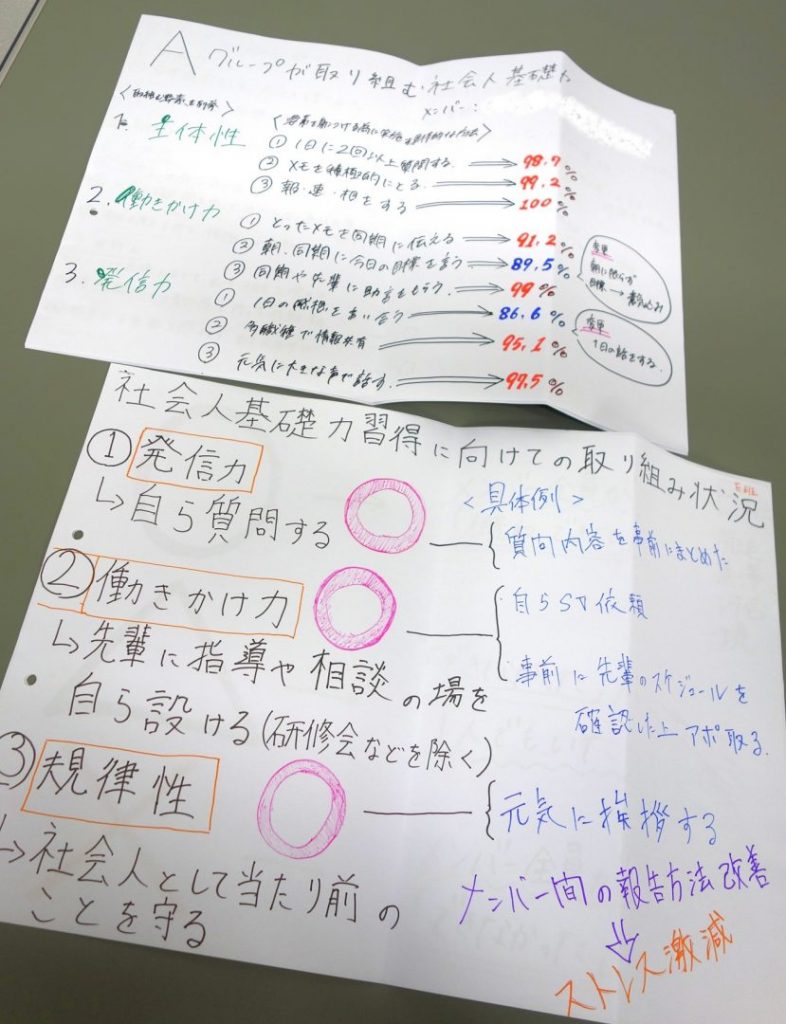 Aグループが取り組む社会人基礎力
メンバー：
1. 主体性
① 1日に2回以上質問する → 98.7%
② メモを積極的にとる → 99.2%
③ 報・連・相をする → 100%
2. 働きかけ力
① とったメモを同期に伝える → 91.2%
② 朝、同期に今日の目標を言う → 89.5%
変更
朝に限らず
目標→
③ 同期や先輩に助言をもらう → 99%
3. 発信力
① 1日の感想を言い合う → 86.6%
変更
1日の話をする。
② 多職種で情報共有 → 95.1%
③ 元気に大きな声で話す → 97.5%
社会人基礎力習得に向けての取り組み状況
① 発信力
↳自ら質問する
<具体例>
質問内容を事前にまとめた
② 働きかけ力
↳先輩に指導や相談の場を
自ら設ける(研修会などを除く)
自らSV依頼
事前に先輩のスケジュールを
確認した上アポ取る
③ 規律性
↳社会人として当たり前の
ことを守る
元気に挨拶する
メンバー間の報告方法改善
⇓
ストレス激減